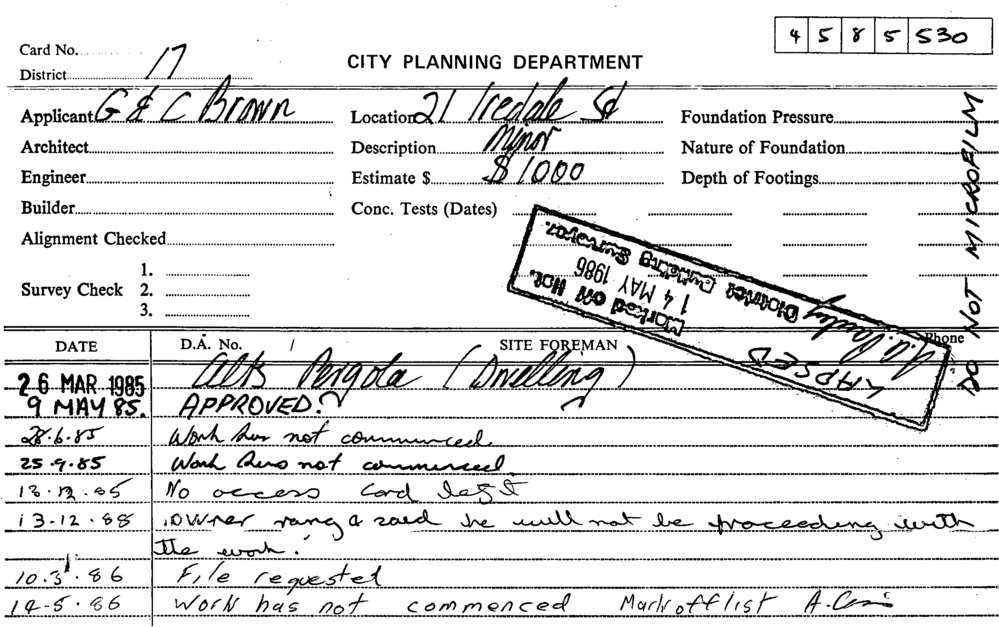 4 5 8 5 530
Card No.
District 17
CITY PLANNING DEPARTMENT
Applicant G & C Brown
Location 21 Iredale St
Foundation Pressure
Architect
Description Minor
Nature of Foundation
Engineer
Estimate $ $1000
Depth of Footings
Builder
Conc. Tests (Dates)
Alignment Checked
Survey Check 1.
2.
3.
DO NOT MICROFILM
Marked off Hol.
14 MAY 1986
District Building Surveyor.
LAPSED
DATE
D.A. No. /
SITE FOREMAN
Phone
26 MAR 1985 Alts Pergola (Dwelling)
9 MAY 85. APPROVED.
28.6.85 Work has not commenced.
25.9.85 Work has not commenced.
13.12.85 No access Card left
13-12.85 Owner rang & said he will not be proceeding with
the work.
10.3.86 File requested
14-5.86 Work has not commenced Mark off list